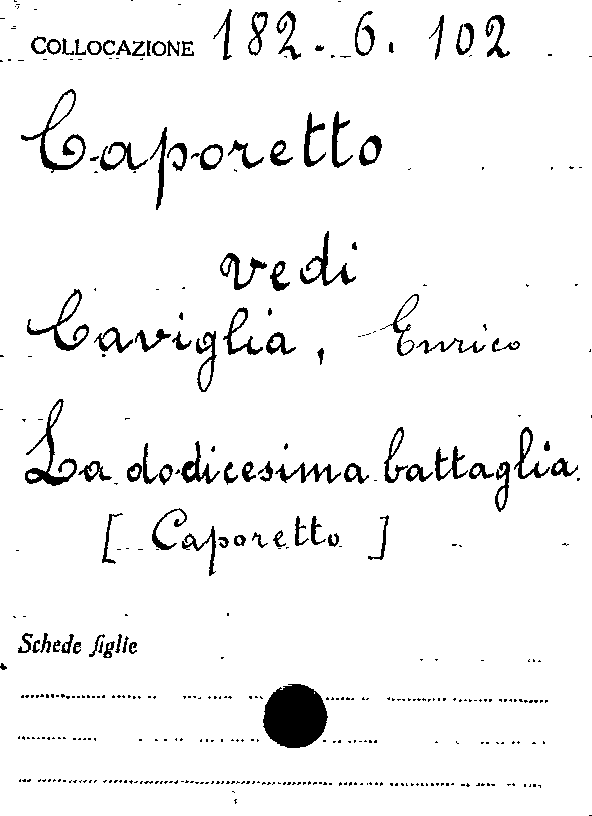 COLLOCAZIONE 182. 6. 102
Caporetto
vedi
Caviglia, Enrico
La dodicesima battaglia.
[ Caporetto ]
Schede figlie